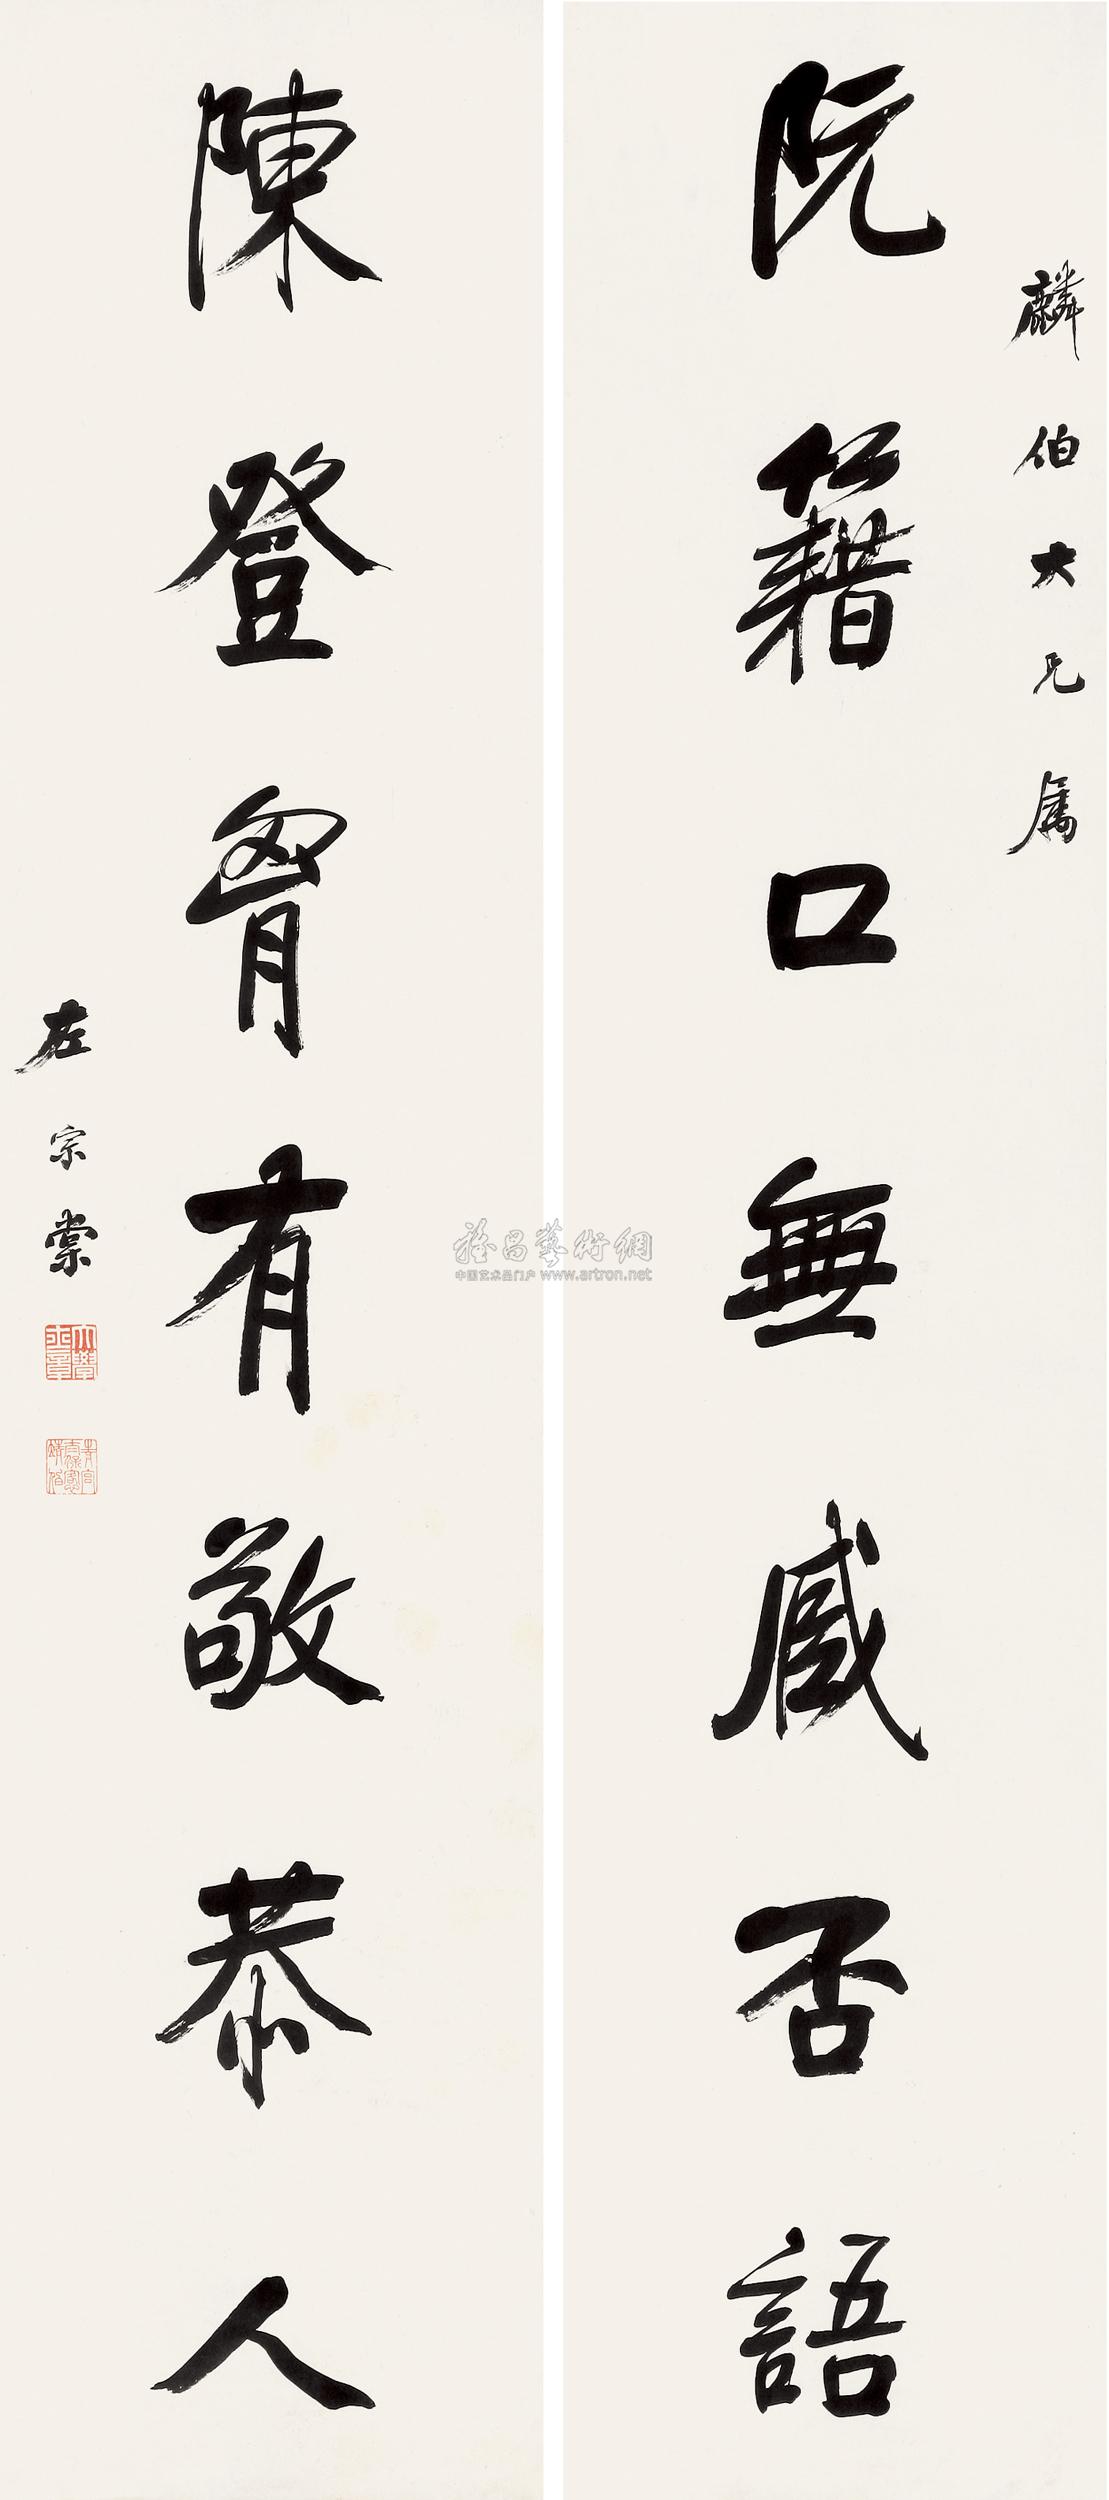 麟伯大兄属
阮籍口無臧否語
陳登胷有敬恭人
左宗棠
雅昌藝術網
中国艺术品门户 www.artron.net